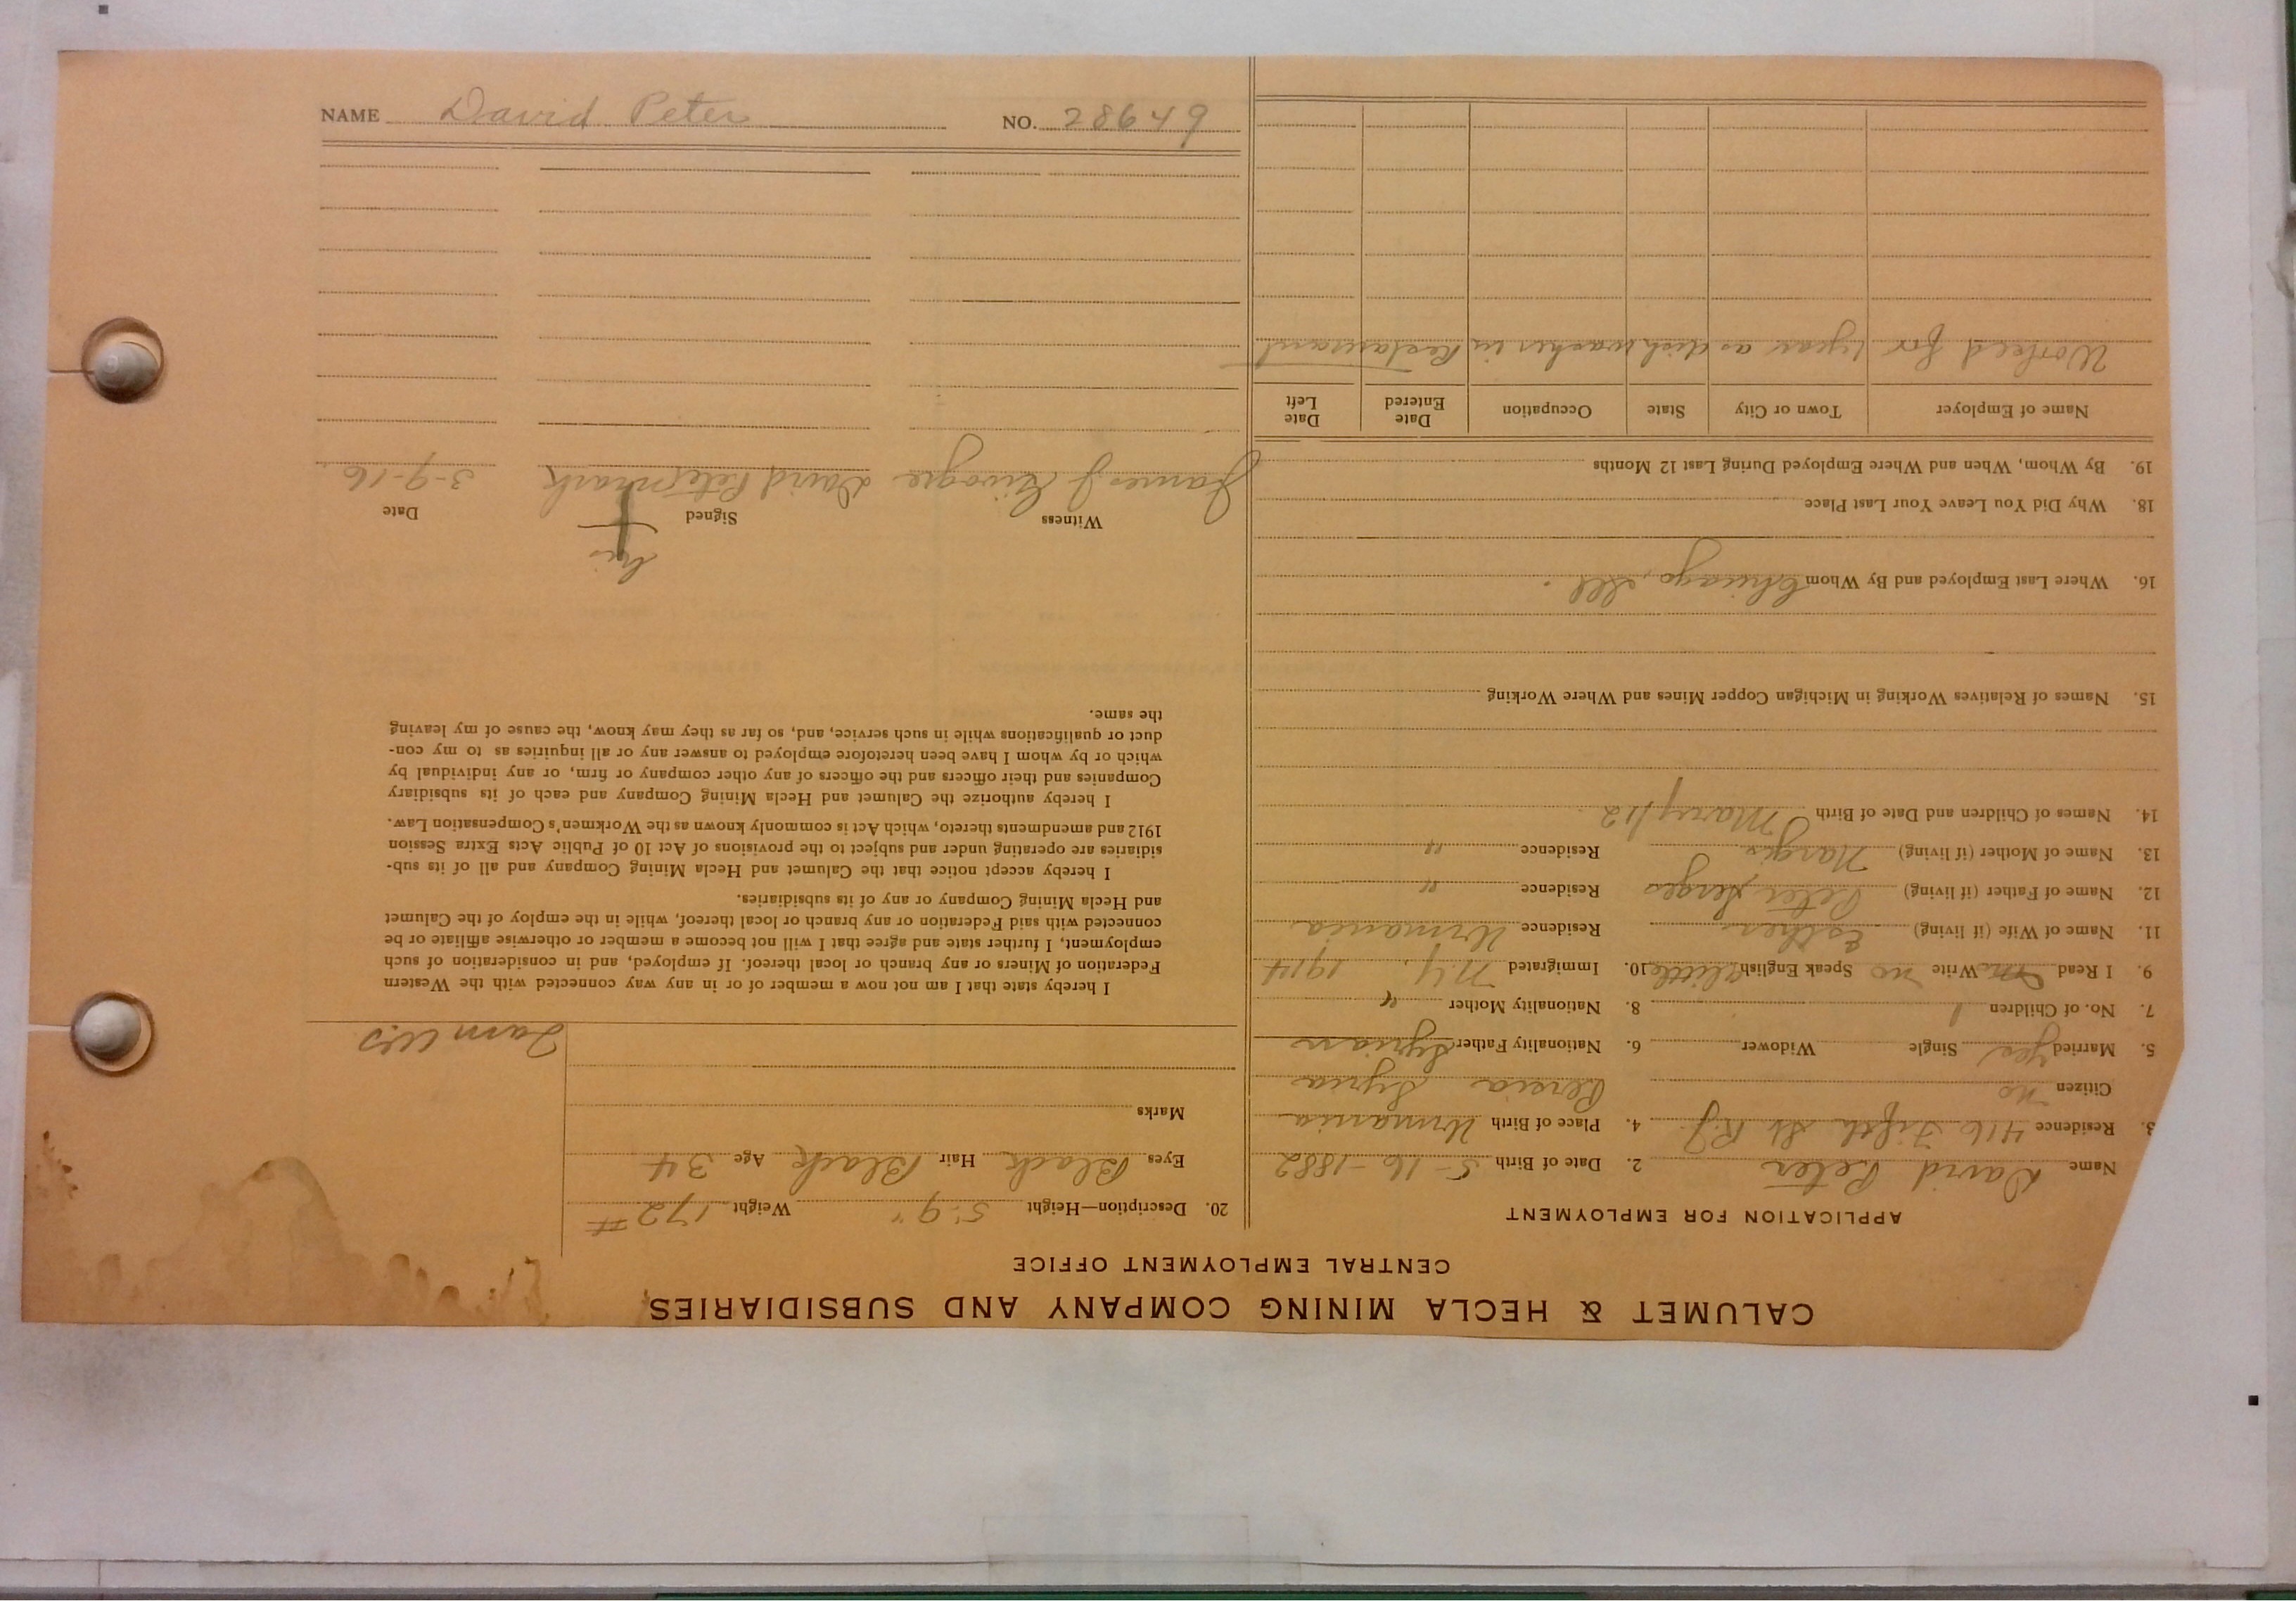 NAME David Peter NO. 28649
CALUMET & HECLA MINING COMPANY AND SUBSIDIARIES
CENTRAL EMPLOYMENT OFFICE
APPLICATION FOR EMPLOYMENT
Name David Peter 2. Date of Birth 5-16-1882
3. Residence 416 Fifth St R.J. 4. Place of Birth Urmania
Citizen no Persia Syria
5. Married yes Single Widower 6. Nationality Father Syrian
7. No. of Children 1 8. Nationality Mother "
9. I Read no Write no Speak English little 10. Immigrated N.Y. 1914
11. Name of Wife (if living) Esther Residence Urmania
12. Name of Father (if living) Peter Residence "
13. Name of Mother (if living) Nargis Residence "
14. Names of Children and Date of Birth Mary /12
15. Names of Relatives Working in Michigan Copper Mines and Where Working
16. Where Last Employed and By Whom Chicago, Ill.
18. Why Did You Leave Your Last Place
19. By Whom, When and Where Employed During Last 12 Months
Name of Employer Town or City State Occupation Date Entered Date Left
Worked for 1 year as dishwasher in Restaurant
20. Description—Height 5' 9" Weight 172 #
Eyes Black Hair Black Age 34
Marks
I hereby state that I am not now a member of or in any way connected with the Western
Federation of Miners or any branch or local thereof. If employed, and in consideration of such
employment, I further state and agree that I will not become a member or otherwise affiliate or be
connected with said Federation or any branch or local thereof, while in the employ of the Calumet
and Hecla Mining Company or any of its subsidiaries.
I hereby accept notice that the Calumet and Hecla Mining Company and all of its sub-
sidiaries are operating under and subject to the provisions of Act 10 of Public Acts Extra Session
1912 and amendments thereto, which Act is commonly known as the Workmen's Compensation Law.
I hereby authorize the Calumet and Hecla Mining Company and each of its subsidiary
Companies and their officers and the officers of any other company or firm, or any individual by
which or by whom I have been heretofore employed to answer any or all inquiries as to my con-
duct or qualifications while in such service, and, so far as they may know, the cause of my leaving
the same.
his
Witness Signed Date
James J David Peter mark 3-9-16